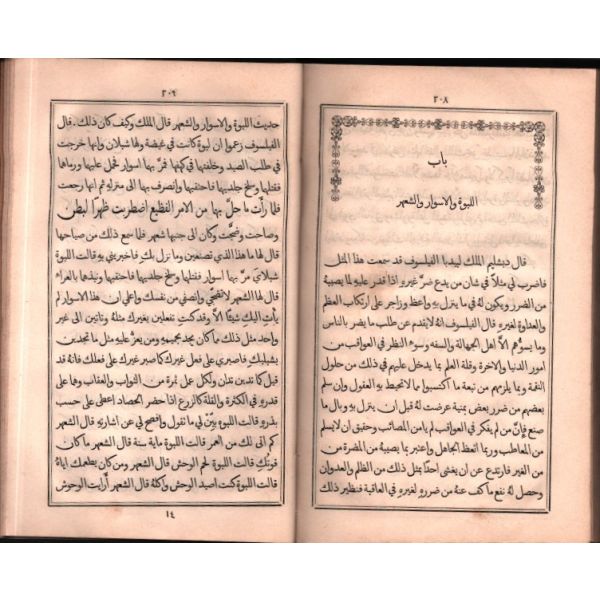 ٢٠٨
باب
اللبوة والاسوار والشعهر
قال دبشليم الملك لبيدبا الفيلسوف قد سمعت هذا المثل
فاضرب لي مثلاً في شان من يدع ضرّ غيرهِ اذا قدر عليهِ لما يصيبهُ
من الضرر ويكون لهُ في ما ينزل بهِ واعظ وزاجر عن ارتكاب الظلم
والعداوة لغيرهِ قال الفيلسوف انهُ لا يقدم على طلب ما يضر بالناس
وما يسوؤهم الّا اهل الجهالة والسفه وسوء النظر في العواقب من
امور الدنيا والاخرة وقلة العلم بما يدخل عليهم في ذلك من حلول
النقمة وبما يلزمهم من تبعة ما اكتسبوا مما لا تحيط بهِ العقول وان سلم
بعضهم من ضرر بعض بمنية عرضت لهُ قبل ان ينزل بهِ وبال ما
صنع فإنّ من لم يفكر في العواقب لم يامن المصائب وحقيق ان لا يسلم
من المعاطب وربما اتعظ الجاهل واعتبر بما يصيبهُ من المضرة من
الغير فارتدع عن ان يغشى احدًا بمثل ذلك من الظلم والعدوان
وحصل لهُ نفع ما كف عنهُ من ضررهِ لغيرهِ في العاقبة فنظير ذلك
٢٠٩
حديث اللبوة والاسوار والشعهر قال الملك وكيف كان ذلك. قال
الفيلسوف زعموا ان لبوة كانت في غيضة ولها شبلان وانها خرجت
في طلب الصيد وخلفتها في كهفها فمرّ بهما اسوار فحمل عليهما ورماهما
فقتلهما وسلخ جلديهما فاحتقبهما وانصرف بهما الى منزلهِ ثم انها رجعت
فلما رأت ما حلّ بهما من الامر الفظيع اضطربت ظهرًا لبطن
وصاحت وضجّت وكان الى جنبها شعهر فلما سمع ذلك من صياحها
قال لها ما هذا الذي تصنعين وما نزل بكِ فاخبريني بهِ قالت اللبوة
شبلاي مرّ بهما اسوار فقتلهما وسلخ جلديهما فاحتقبهما ونبذهما بالعراء
قال لها الشعهر لا تضجّي وانصفي من نفسك واعلمي ان هذا الاسوار لم
يأت اليكِ شيئًا الّا وقد كنتِ تفعلين بغيركِ مثلهُ وتأتين الى غير
واحد مثل ذلك مما كان يجد بحميمهِ ومن يعزّ عليهِ مثل ما تجدين
بشبليكِ فاصبري على فعل غيركِ كما صبر غيركِ على فعلك فانهُ قد
قيل كما تدين تدان ولكل عمل ثمرة من الثواب والعقاب وهما على
قدرهِ في الكثرة والقلة كالزرع اذا حضر الحصاد اعطى على حسب
بذرهِ قالت اللبوة بيّن لي ما تقول وافصح لي عن اشارتهِ قال الشعهر
كم اتى لك من العمر قالت اللبوة ماية سنة قال الشعهر ما كان
قوتكِ قالت اللبوة لحم الوحش قال الشعهر ومن كان يطعمك اياهُ
قالت اللبوة كنت اصيد الوحش واكلهُ قال الشعهر أرأيت الوحوش
١٤